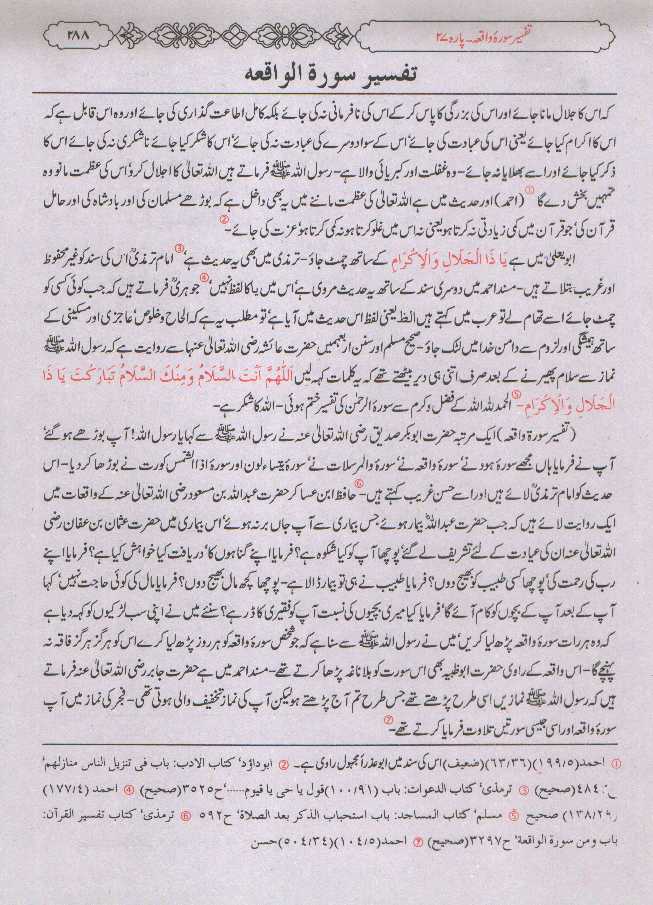 تفسیر سورۂ واقعہ۔ پارہ ۲۷
۲۸۸
تفسير سورة الواقعه
کہ اس کا جلال مانا جائے اور اس کی بزرگی کا پاس کر کے اس کی نافرمانی نہ کی جائے بلکہ کامل اطاعت گذاری کی جائے اور وہ اس قابل ہے کہ
اس کا اکرام کیا جائے یعنی اس کی عبادت کی جائے' اس کے سوا دوسرے کی عبادت نہ کی جائے' اس کا شکر کیا جائے ناشکری نہ کی جائے اس کا
ذکر کیا جائے اور اسے بھلایا نہ جائے- وہ عظمت اور کبریائی والا ہے- رسول اللہ ﷺ فرماتے ہیں اللہ تعالیٰ کا اجلال کرو' اس کی عظمت مانو وہ
تمہیں بخش دے گا ① (احمد) اور حدیث میں ہے اللہ تعالیٰ کی عظمت ماننے میں یہ بھی داخل ہے کہ بوڑھے مسلمان کی اور بادشاہ کی اور حامل
قرآن کی' جو قرآن میں کمی زیادتی نہ کرتا ہو یعنی نہ اس میں غلو کرتا ہو نہ کمی کرتا ہو' عزت کی جائے- ②
ابویعلیٰ میں ہے يَا ذَا الْجَلَالِ وَالْاِكْرَامِ کے ساتھ چمٹ جاؤ- ترمذی میں بھی یہ حدیث ہے' ③ امام ترمذیؒ اس کی سند کو غیر محفوظ
اور غریب بتلاتے ہیں- مسند احمد میں دوسری سند کے ساتھ یہ حدیث مروی ہے' اس میں یا کا لفظ نہیں' ④ جوہریؒ فرماتے ہیں کہ جب کوئی کسی کو
چمٹ جائے اسے تھام لے تو عرب میں کہتے ہیں الظ یعنی لفظ اس حدیث میں آیا ہے' تو مطلب یہ ہے کہ الحاح و خلوص' عاجزی اور مسکینی کے
ساتھ ہیشگی اور لزوم سے دامن خدا میں لٹک جاؤ- صحیح مسلم اور سنن اربعہ میں حضرت عائشہ رضی اللہ تعالیٰ عنہا سے روایت ہے کہ رسول اللہ ﷺ
نماز سے سلام پھیرنے کے بعد صرف اتنی ہی دیر بیٹھتے تھے کہ یہ کلمات کہہ لیں اَللّٰهُمَّ اَنْتَ السَّلَامُ وَمِنْكَ السَّلَامُ تَبَارَكْتَ يَا ذَا
الْجَلَالِ وَالْاِكْرَامِ- ⑤ الحمد للہ اللہ کے فضل و کرم سے سورۂ الرحمٰن کی تفسیر ختم ہوئی- اللہ کا شکر ہے-
(تفسیر سورۂ واقعہ) ایک مرتبہ حضرت ابوبکر صدیق رضی اللہ تعالیٰ عنہ نے رسول اللہ ﷺ سے کہا یا رسول اللہ! آپ بوڑھے ہو گئے'
آپ نے فرمایا ہاں مجھے سورۂ ہود نے' سورۂ واقعہ نے' سورۂ والمرسلات نے' سورۂ عم یتساءلون اور سورۂ اذا الشمس کورت نے بوڑھا کر دیا- اس
حدیث کو امام ترمذیؒ لائے ہیں اور اسے حسن غریب کہتے ہیں- ⑥ حافظ ابن عساکر حضرت عبداللہ بن مسعود رضی اللہ تعالیٰ عنہ کے واقعات میں
ایک روایت لائے ہیں کہ جب حضرت عبداللہؓ بیمار ہوئے' جس بیماری سے آپ جاں بر نہ ہوئے' اس بیماری میں حضرت عثمان بن عفان رضی
اللہ تعالیٰ عنہ ان کی عیادت کے لئے تشریف لے گئے' پوچھا آپ کو کیا شکوہ ہے؟ فرمایا اپنے گناہوں کا' دریافت کیا خواہش کیا ہے؟ فرمایا اپنے
رب کی رحمت کی' پوچھا کسی طبیب کو بھیج دوں؟ فرمایا طبیب نے ہی تو بیمار ڈالا ہے- پوچھا کچھ مال بھیج دوں؟ فرمایا مال کی کوئی حاجت نہیں' کہا
آپ کے بعد آپ کے بچوں کو کام آئے گا' فرمایا کیا میری بچیوں کی نسبت آپ کو فقیری کا ڈر ہے؟ سنئے میں نے اپنی سب لڑکیوں کو کہہ دیا ہے
کہ وہ ہر رات سورۂ واقعہ پڑھ لیا کریں' میں نے رسول اللہ ﷺ سے سنا ہے کہ جو شخص سورۂ واقعہ کو ہر روز پڑھ لیا کرے اس کو ہرگز ہرگز فاقہ نہ
پہنچے گا- اس واقعہ کے راوی حضرت ابوظبیہ بھی اس سورت کو بلا ناغہ پڑھا کرتے تھے- مسند احمد میں ہے حضرت جابر رضی اللہ تعالیٰ عنہ فرماتے
ہیں کہ رسول اللہ ﷺ نمازیں اسی طرح پڑھتے تھے جس طرح تم آج پڑھتے ہو لیکن آپ کی نماز تخفیف والی ہوتی تھی- فجر کی نماز میں آپ
سورۂ واقعہ اور اسی جیسی سورتیں تلاوت فرمایا کرتے تھے- ⑦
① احمد(۱۹۹/۵)(۶۳/۳۶)(ضعیف) اس کی سند میں ابوعذراً مجہول راوی ہے۔ ② ابوداؤد' کتاب الادب: باب فی تنزیل الناس منازلهم'
ح:۴۸۴(صحیح) ③ ترمذی' کتاب الدعوات: باب (۱۰۰/۹۱)قول یا حی یا قیوم......'ح۳۵۲۵(صحیح) ④ احمد (۱۷۷/۴)
(۱۳۸/۲۹) صحیح ⑤ مسلم' کتاب المساجد: باب استحباب الذکر بعد الصلاة' ح۵۹۲ ⑥ ترمذی' کتاب تفسیر القرآن:
باب ومن سورة الواقعة' ح۳۲۹۷(صحیح) ⑦ احمد(۱۰۴/۵)(۵۰۴/۳۴)حسن